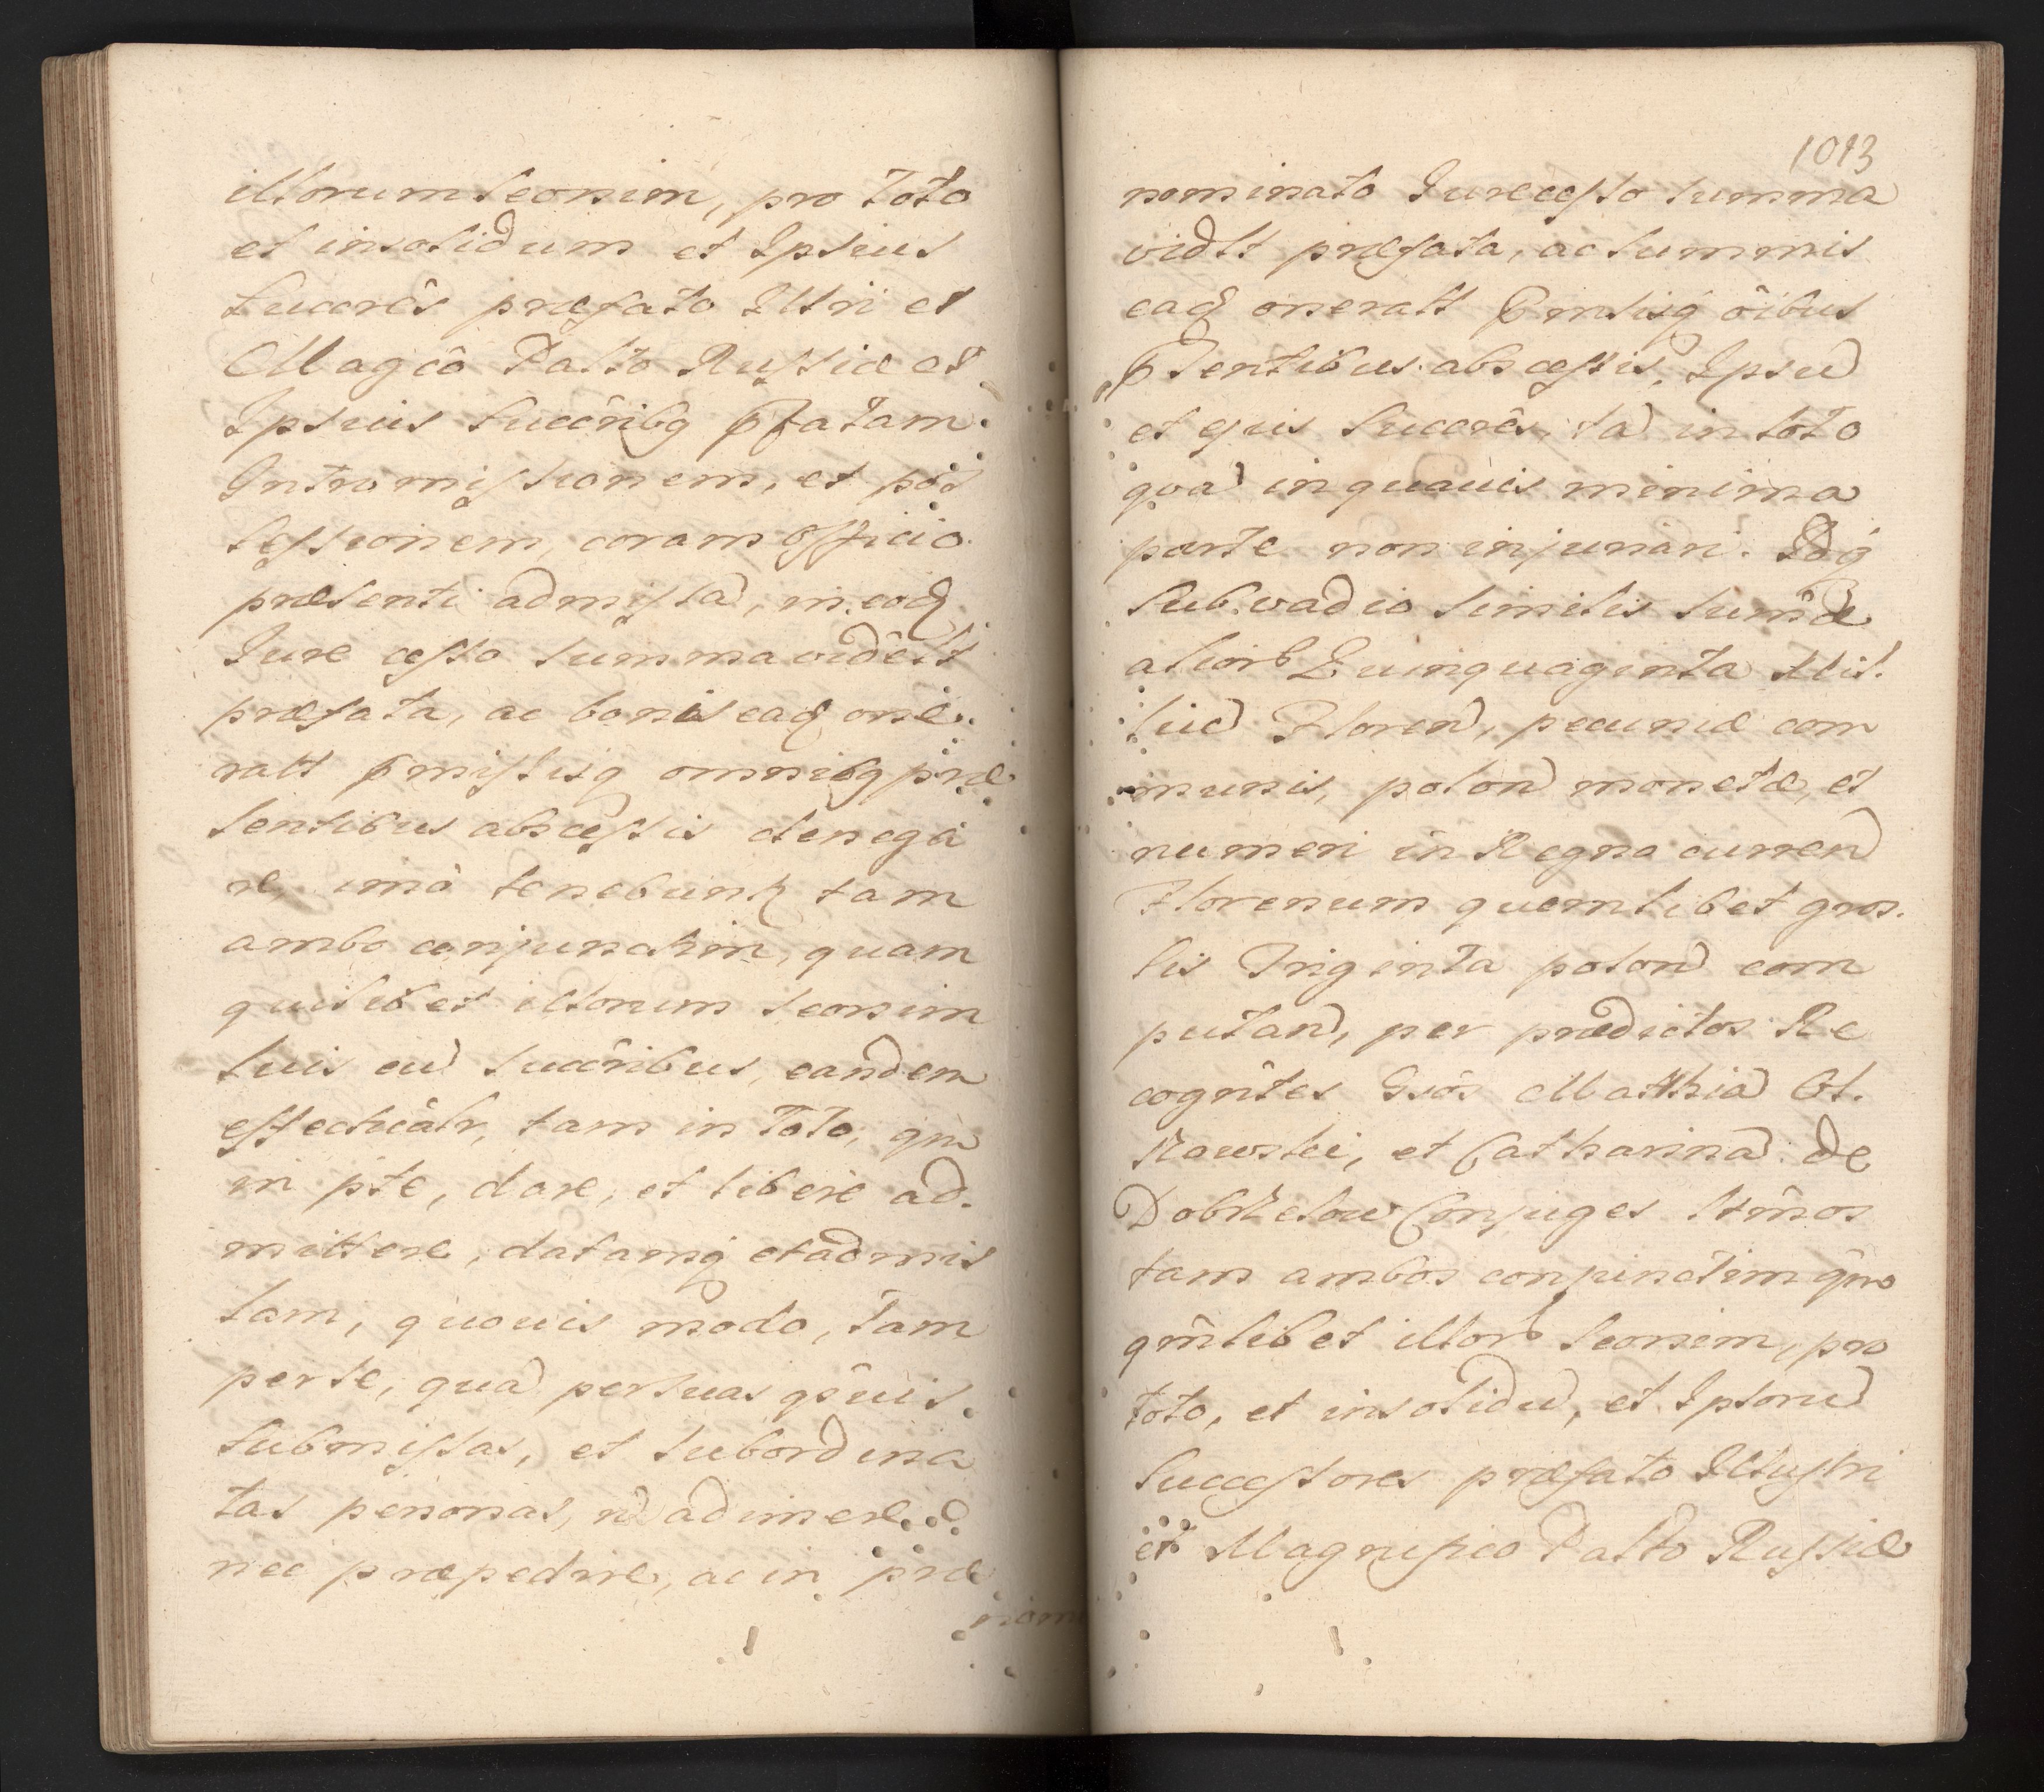 illorum seorsim, pro toto
et insolidum et Ipsius
Succrês præfato Illri et
Magcô Palto Russiæ et
Ipsius Succribq pfatam
Intromissionem, et pos
sessionem, coram officio
præsenti admissa, in eoq
Jure cesso summa videlt
præfata, ac bonis eaq one.
ratt pmissisq omnibq præ
sentibus abscessis denega
re, imò tenebunt tam
ambo conjunctim, quam
quilibet illorum seorsim
suis cu succribus, eandem
effectualr, tam in toto, qm
in pte, dare, et liberè ad.
mittere, datamq et admis
sam, quovis modo, tam
per se, qua per suas qsuis.
submissas, et subordina
tas personas, n adimere
nec præpedire, ac in præ
nom
1013
nominato Jurecesso summa
vidlt præfata, ac summis
eaq oneratt pmissisq oibus
psentibus abscessis, Ipsu
et ejus Succrês, ta in toto
qva in quavis minima
parte non injuriari. Idq
sub vadio similis sumæ
alior Quinquaginta Mil.
liu Floren, pecuniæ com
munis, polon monetæ, et
numeri in Regno curren
Florenum quemlibet gros.
sis Triginta polon com
putan, per prædictos Re
cognîtes Gsôs Matthia
et Catharina de
Conjuges
tam ambos conjunctim qm
qmlibet illor seorsim, pro
toto, et insolidu, et Ipsoru
Successores præfato Illustri
et Magnifico Palto Russiæ